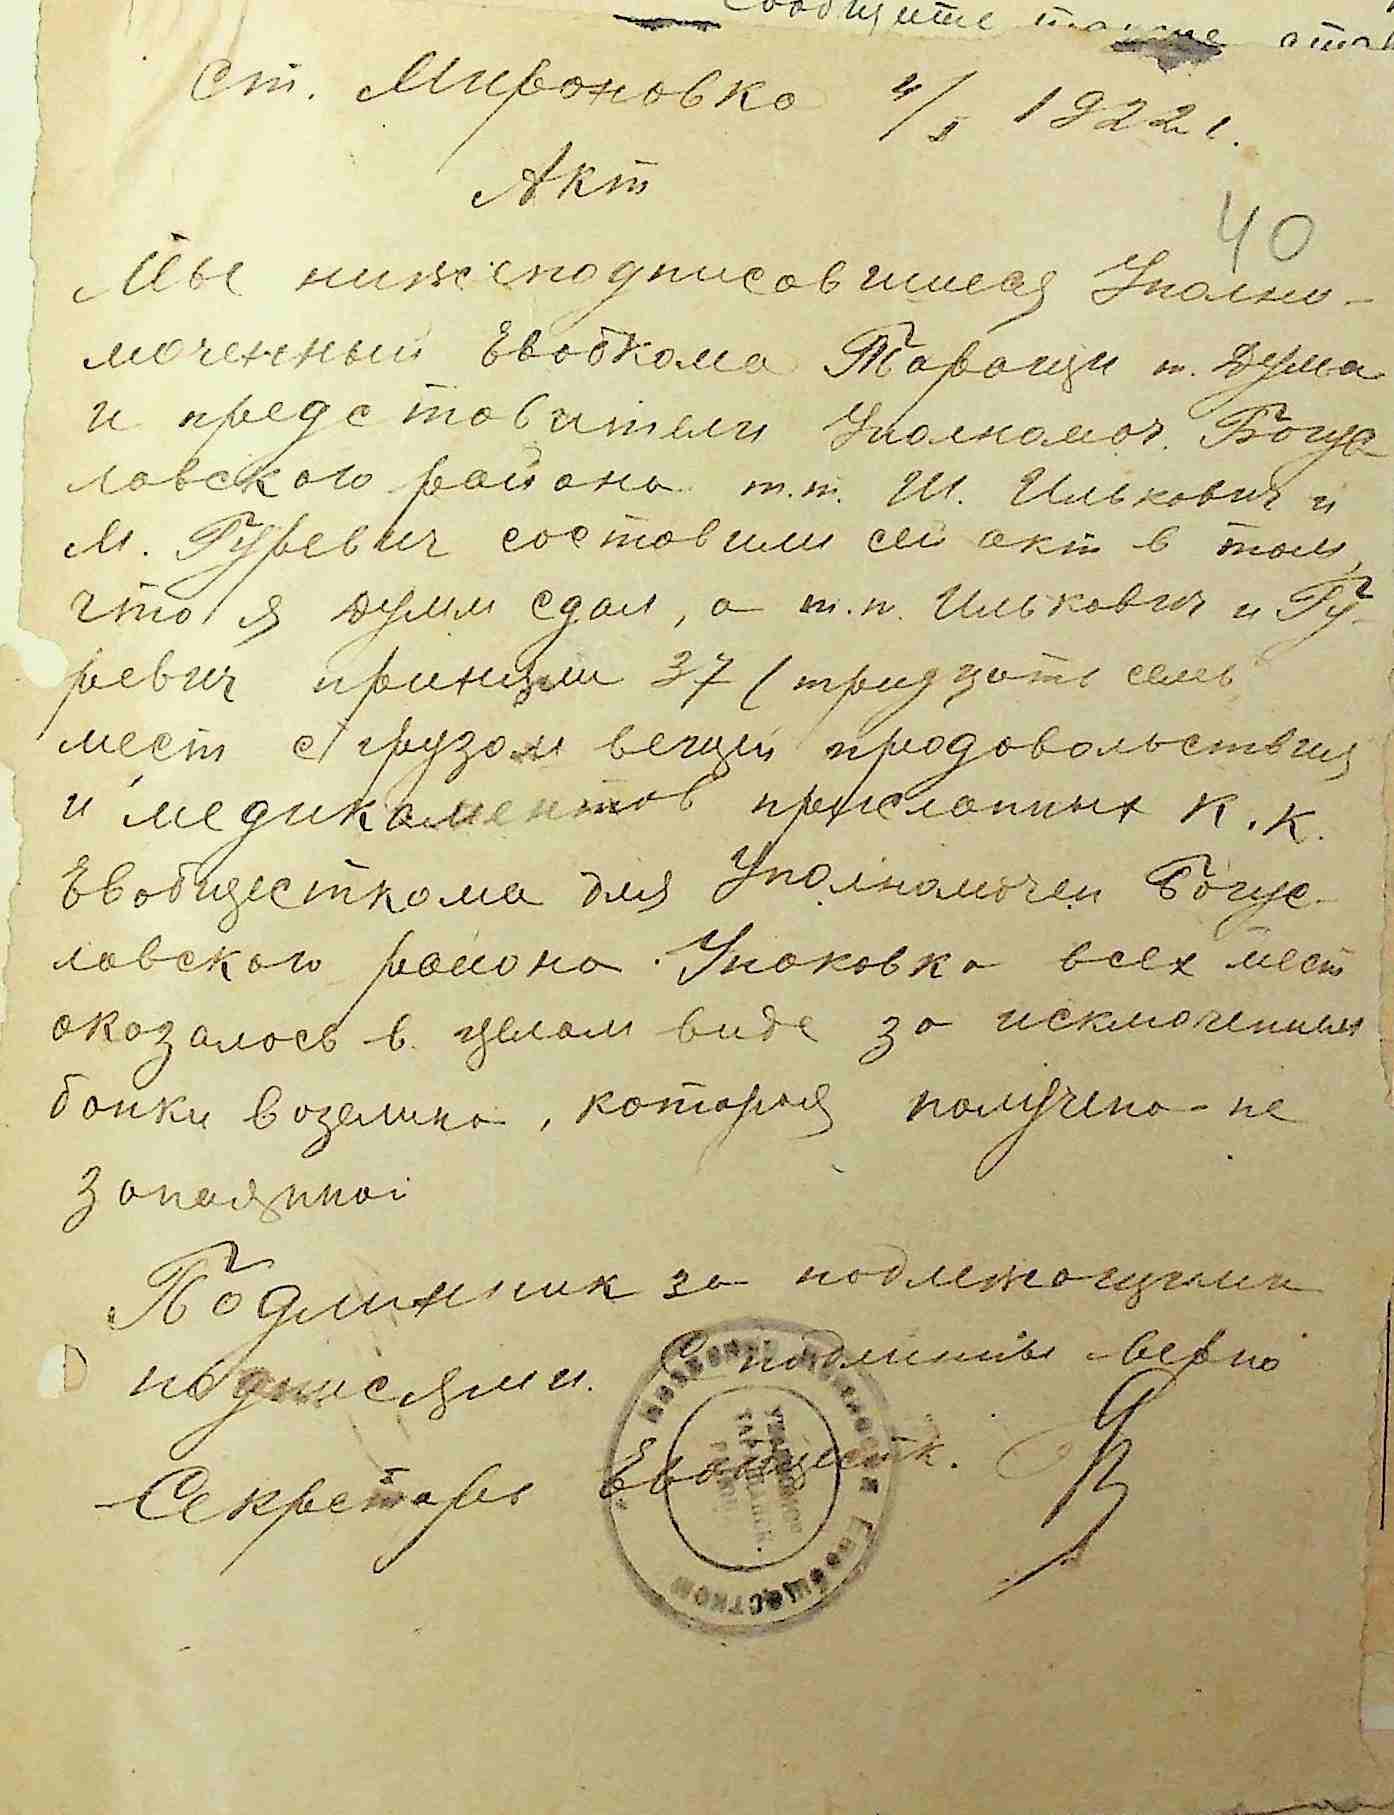 Сообщите
ст. Мироновка 4/X 1922 г.
Акт
40
Мы нижеподписавшиеся Уполно-
моченный Евобкома Таращи т. Дума
и представители Уполномоч. Богус
лавского района т.т. Ш. Илькович и
М. Гуревич составили сей акт в том,
что я Думм сдал, а т.т. Илькович и Гу-
ревич приняли 37 (тридцать семь
мест с грузом вещей продовольствия
и медикаментов присланных К.К.
Евобщесткома для Уполномочен Богус-
лавского района. Упаковка всех мест
оказалось в целом виде за исключением
банки вазелина, которая получена не
запаянной
Подлинник за надлежащими
подписями. С подлинным верно
Секретарь Евобщестк.
Евобщестком